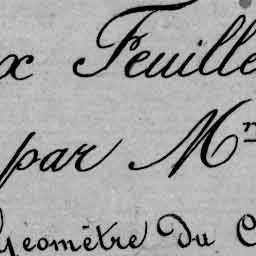 x Feuille
par Mr
Géomètre du C